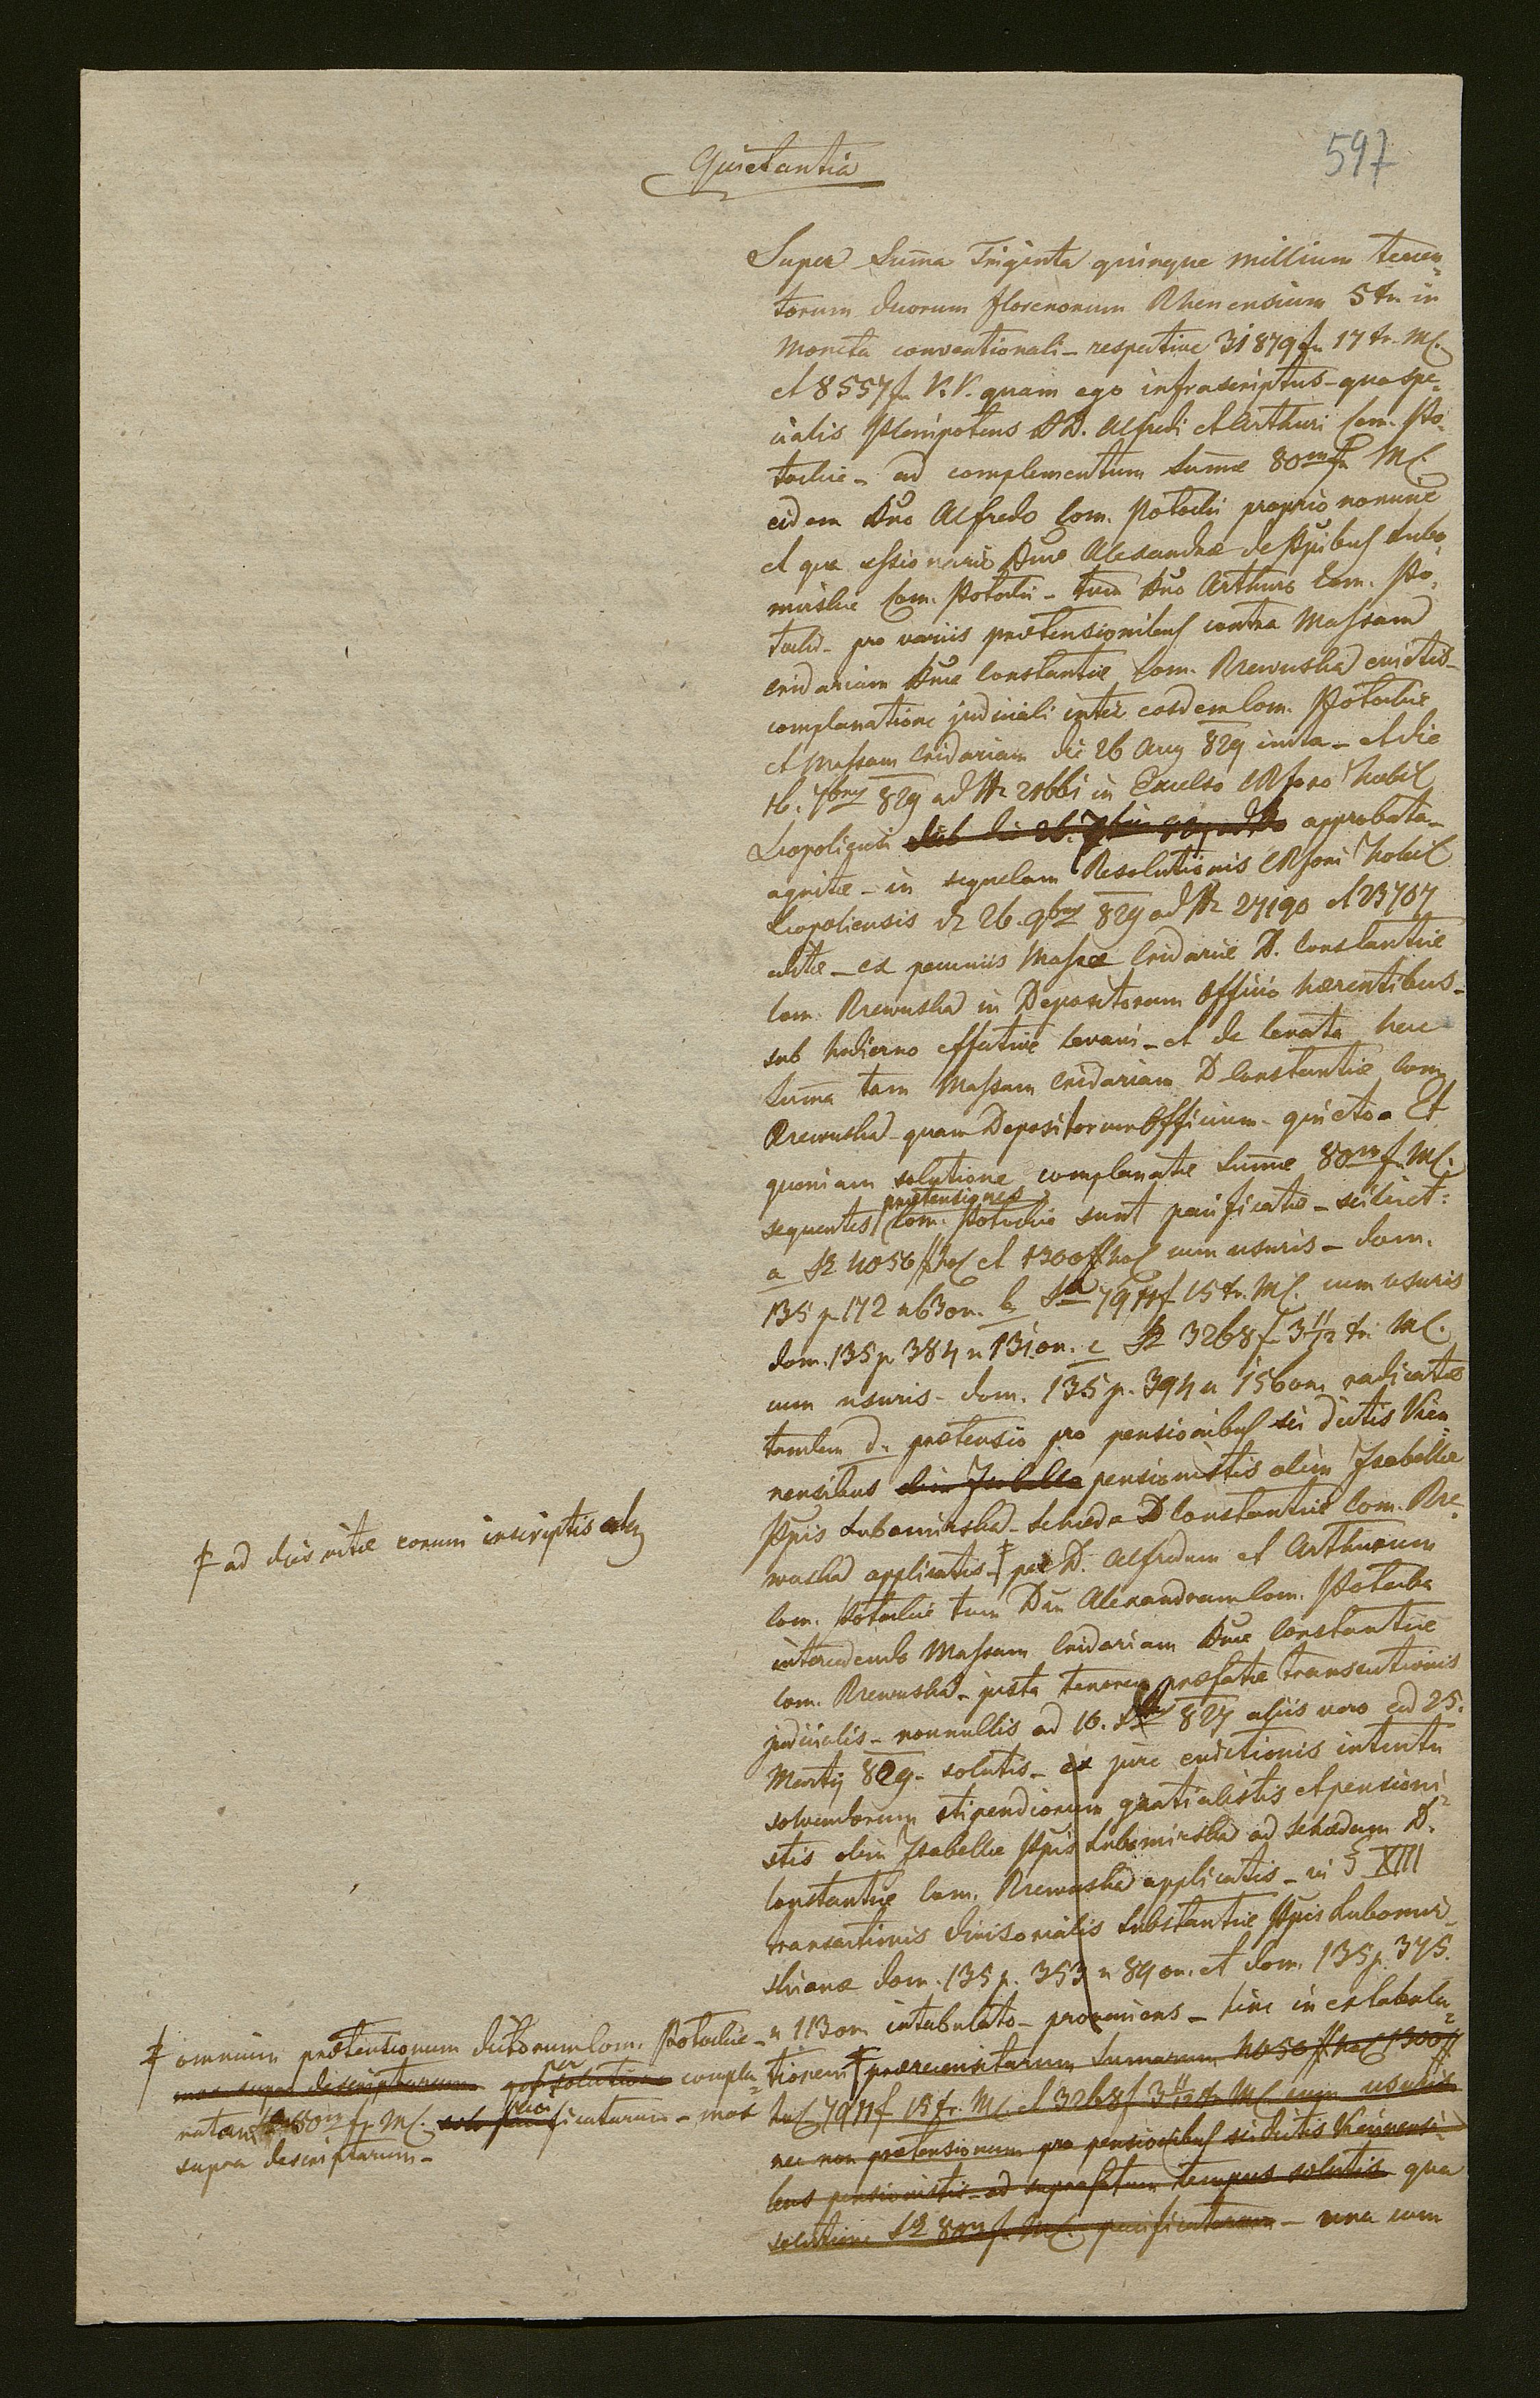 597
Quietantia
Super Suma Triginta quinque millium tercen-
torum duorum florenorum Rhenensium 5 xr. in
Moneta conventionali – respective 31879 fr 17 xr. MC.
et 8557 fr V.V. quam ego infrascriptus – qua spe-
cialis Plenipotens DD. Alfredi et Arthuri Com. Po-
tockie – ad complementum Sume 80m fr MC.
eidem Dno Alfredo Com. Potocki proprio nomine
et qua cessionario Dnae Alexandrae de Ppibus Lubo-
mirskie Com. Potocki – tum Dno Arthuro Com. Po-
tocki – pro variis praetensionibus contra Massam
cridariam Dnae Constantiae Com. Rzewuska evictis –
complanatione judiciali inter eosdem Com. Potockie
et Massam Cridariam die 26 Aug 829 inita – et die
16. 7bris 829 ad Nr 21661 in Excelso CR foro Nobil
Leopoliensi sub die 26. approbata –
agnitae – in sequelam Resolutionis CR fori Nobil
Leopoliensis dt 26. 9bris 829 ad Nr 27190 et 23707
editae – ex pecuniis Massae Cridariae D. Constantiae
Com. Rzewuska in Depositorum Officio haerentibus –
sub hodierno effective levavi – et de levata hac
Suma tam Massam Cridariam D Constantiae Com
Rzewuska – quam Depositorum Officium – quieto. Et
quoniam solutione complanatae Sume 80m fr MC.
praetensiones
sequentes Com. Potockie sunt pacificatae – scilicet:
a Sz 4056 # hol et 1300 # hol cum usuris – dom.
135 p 172 n 63 on. b Sa 7911 f 15 xr. MC. cum usuris
dom. 135 p. 384 n 131 on. c Sz 3268 f 3 11/12 xr. MC.
cum usuris – dom. 135 p. 394 n 156 on. radicatae
tandem d. praetensio pro pensionibus sic dictis Vien-
nensibus olim Isabellae pensionistis olim Isabellae
Ppis Lubomirska – schedae D Constantiae Com. Rze-
wuska applicatis – ‡ per D. Alfredum et Arthurum
Com. Potockie tum Dnam Alexandram Com. Potocka
intercedendo Massam Cridariam Dnae Constantiae
Com. Rzewuska – juxta tenorem praefatae transactionis
judicialis – nonnullis ad 16. 827 aliis vero ad 25.
Martij 829 – solutis – ex jure evictionis intuitu
solvendorum stipendiorum gratialistis et pensioni-
stis olim Isabellae Ppis Lubomirska ad schedam D.
Constantiae Com. Rzewuska applicatis – in § XIII
transactionis divisorialis Substantiae Ppis Lubomir-
skiana dom. 135 p. 353 n 89 on. et dom. 135 p. 375.
n 113 on intabulato – proveniens – hinc in extabula-
tionem ‡ praerecensitarum Sumarum 4056 # hol 1300 #
hol 7911 f 15 xr. MC et 3268 f 3 11/12 xr MC cum usuris
nec non praetensionum pro pensionibus sic dictis Viennensi-
bus pensionistis – ad supra fatum tempus solutis – qua
solutione Sz 80m f. MC. pacificatarum – una cum
‡ ad dies vitae eorum inscriptis
‡ omnium praetensionum dictorum Com. Potockie –
mox supra descriptarum per solutione compla-
natam 80m fr. MC. pacificatarum – mox
supra descriptarum –